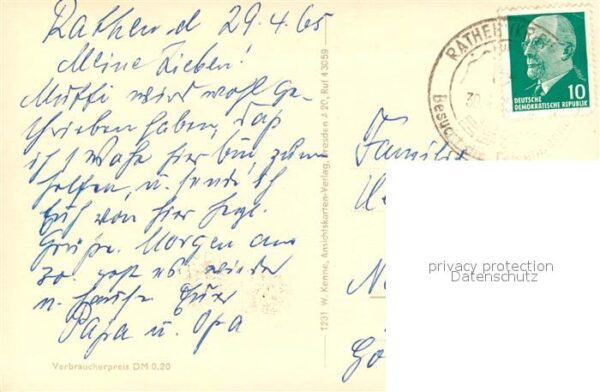 Rathen d 29.4.65
Meine Lieben!
Mutti wird wohl ge-
schrieben haben, daß
ich 1 Woche hier bin, zum
helfen, u. sende ich
Euch von hier hrzl.
Grüße. Morgen am
30. geht es wieder
n. Hause Euer
Papa u. Opa
Verbraucherpreis DM 0,20
1231 W. Kenne, Ansichtskarten-Verlag, Dresden A 20, Ruf 43059
RATHEN
30.4
Besuch
10
DEUTSCHE
DEMOKRATISCHE REPUBLIK
Familie
privacy protection
Datenschutz